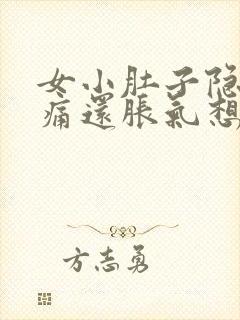 女小肚子隐
痛還脹氣想
方志勇